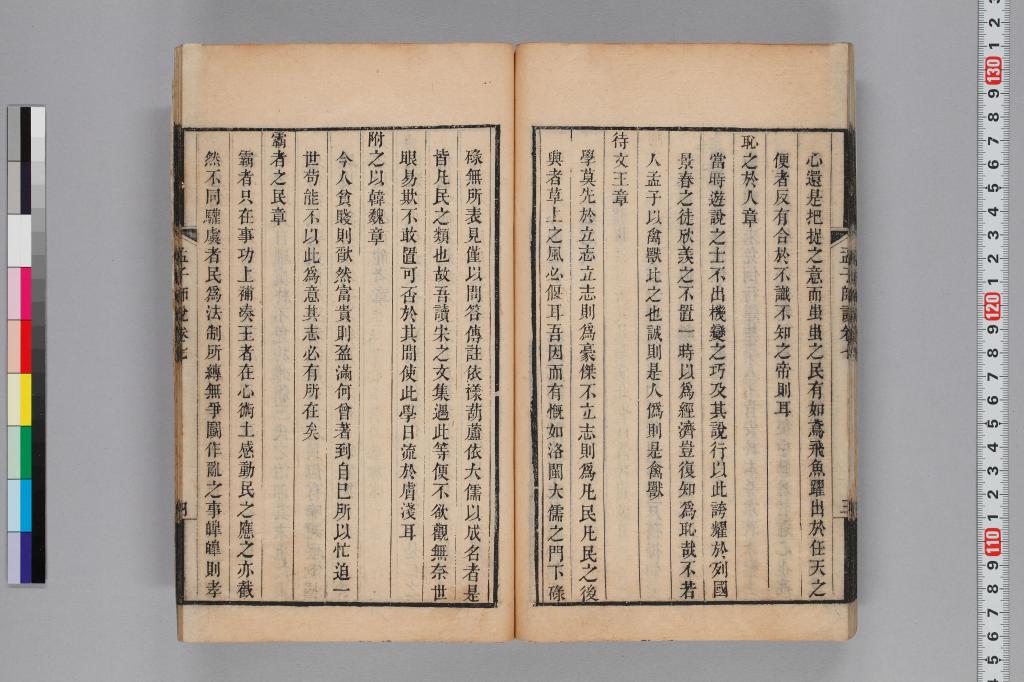 心還是把捉之意而蚩蚩之民有如鳶飛魚躍出於任天之
便者反有合於不識不知之帝則耳
恥之於人章
當時遊說之士不出機變之巧及其說行以此誇耀於列國
景春之徒欣羨之不置一時以為經濟豈復知為恥哉不若
人孟子以禽獸比之也誠則是人偽則是禽獸
待文王章
學莫先於立志立志則為豪傑不立志則為凡民凡民之後
興者草上之風必偃耳吾因而有慨如洛閩大儒之門下碌
碌無所表見僅以問答傳註依樣葫蘆依大儒以成名者是
皆凡民之類也故吾讀宋之文集遇此等便不欲觀無奈世
眼易欺不敢置可否於其間使此學日流於膚淺耳
附之以韓魏章
今人貧賤則歉然富貴則盈滿何曾著到自己所以忙迫一
世苟能不以此為意其志必有所在矣
霸者之民章
霸者只在事功上補湊王者在心術上感動民之應之亦截
然不同驩虞者民為法制所縛無爭鬬作亂之事皞皞則孝
孟子師說卷七
孟子師說卷七
130
120
110